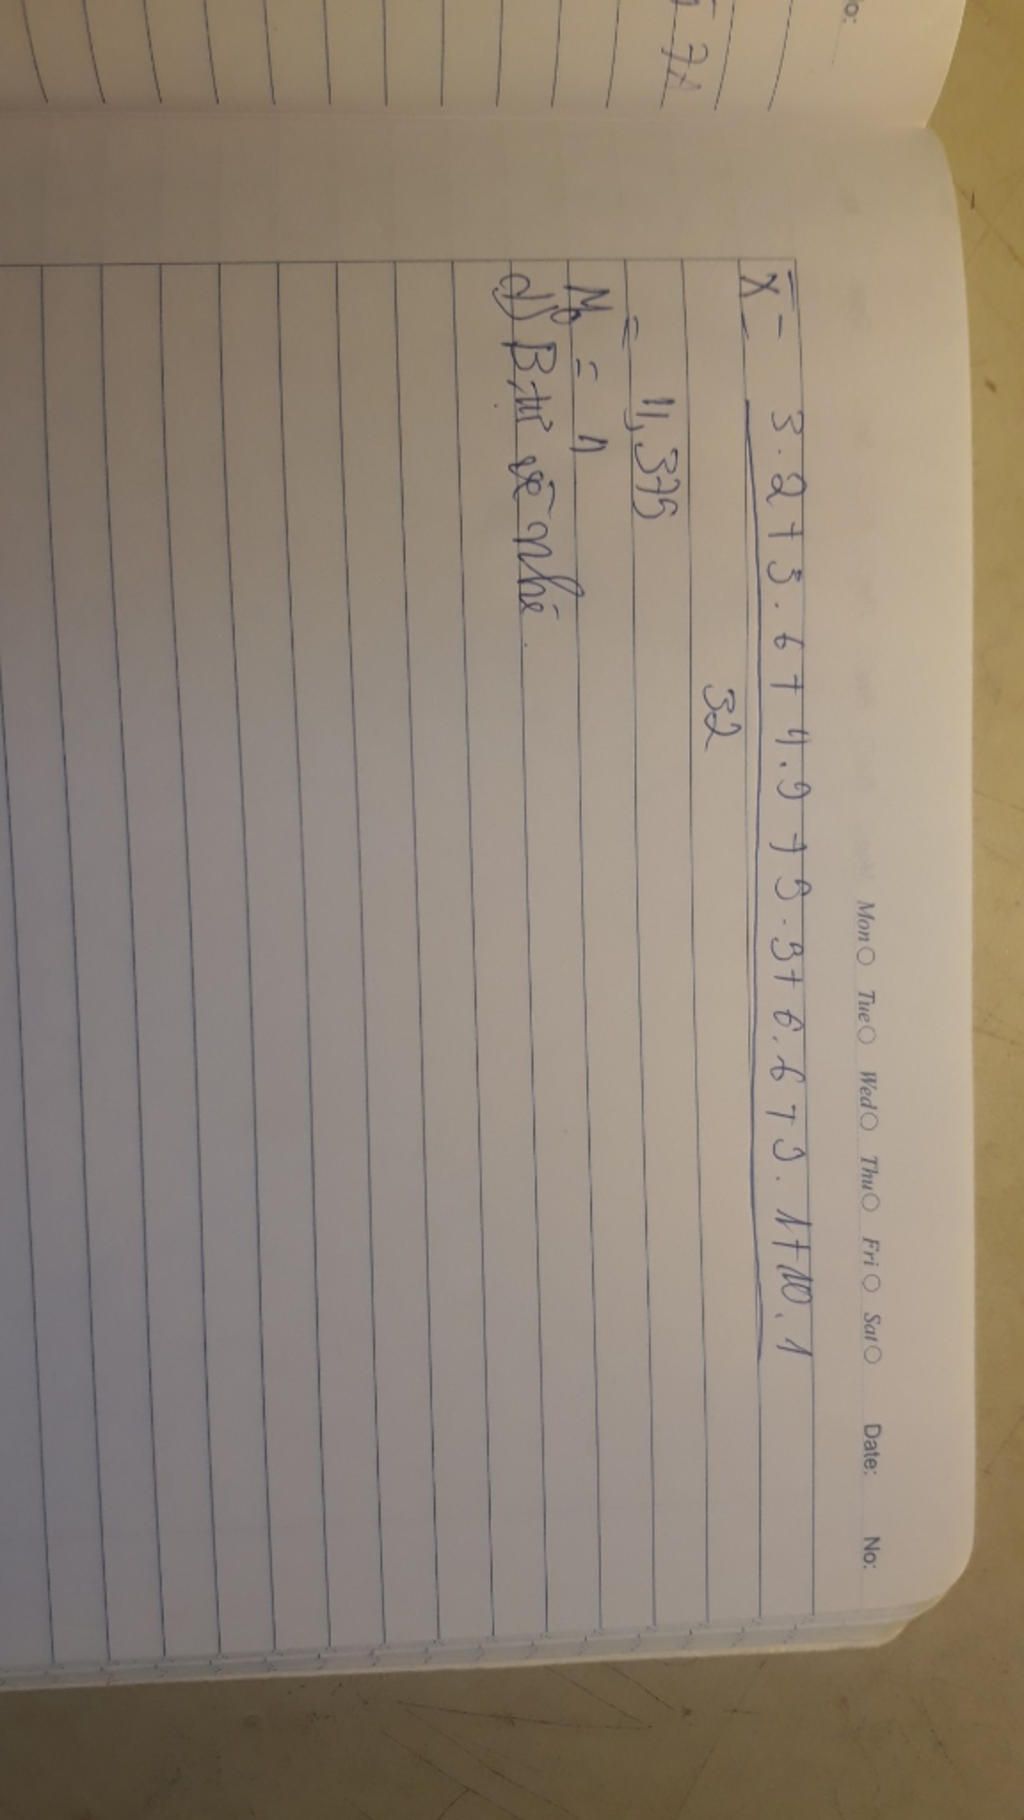 No:
7A
Mon Tue Wed Thu Fri Sat Date: No:
X̄ = 3.2+3.6+4.9+5.5+6.6+9.1+10.1
32
= 4,375
M₀ = 4
d) B tự vẽ nhé.